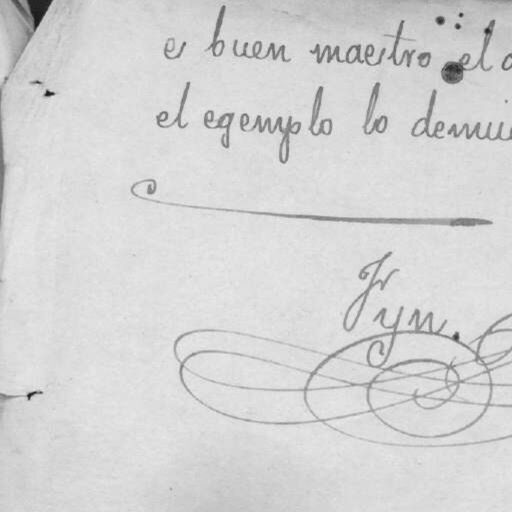 es buen maestro el
el egemplo lo
Fyn.